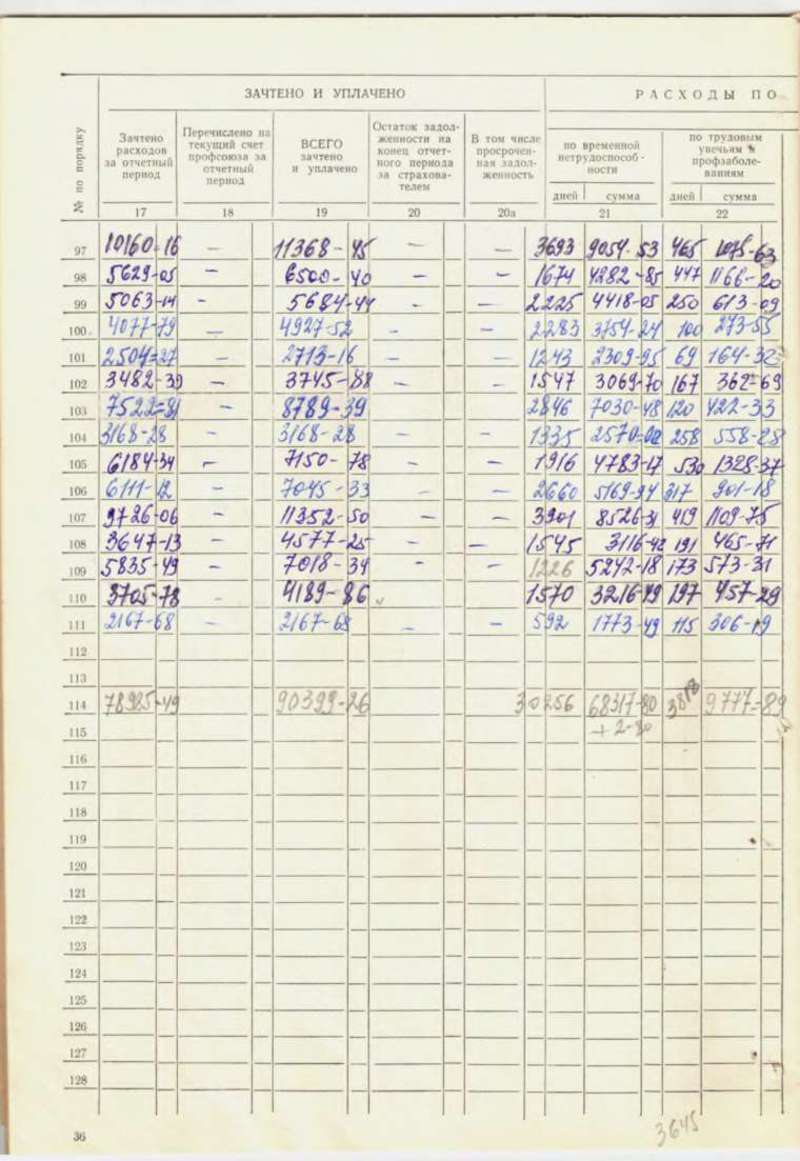 ЗАЧТЕНО И УПЛАЧЕНО РАСХОДЫ ПО
№ по порядку
Зачтено расходов за отчетный период
Перечислено на текущий счет профсоюза за отчетный период
ВСЕГО зачтено и уплачено
Остаток задолженности на конец отчетного периода за страхователем
В том числе просроченная задолженность
по временной нетрудоспособности
по трудовым увечьям и профзаболеваниям
дней сумма дней сумма
17 18 19 20 20а 21 22
97 10160-16 — 11368-45 — — 3693 9054-53 465 1075-63
98 5629-05 — 6500-40 — — 1674 4282-85 447 1166-20
99 5063-14 - 5684-44 - — 2225 4418-05 250 613-09
100 4077-79 — 4927-52 - - 2283 3754-24 100 273-55
101 2504=27 — 2713-16 — — 1243 2309-95 69 164-32
102 3482-39 — 3745-88 — - 1547 3069-70 167 362=69
103 7522=81 — 8789-39 — 2846 7030-48 120 422-33
104 3168-28 — 3168-28 — - 1335 2570-02 258 558-28
105 6184-34 — 7150-78 — — 1916 4783-17 530 1328-37
106 6111-12 — 7045-33 - - 2660 5169-94 317 901-18
107 9726-06 — 11352-50 — — 3901 8526-31 419 1109-75
108 3647-13 — 4577-25 — — 1545 3116-42 191 465-71
109 5835-49 — 7018-34 — — 1226 5242-18 173 573-31
110 3705-78 - 4189-86 1570 3216-49 197 457-29
111 2167-68 — 2167-68 — — 592 1773-49 115 306-19
112
113
114 78985-49 90399-26 30256 68317-80 9777=89
115 +2-80
116
117
118
119
120
121
122
123
124
125
126
127
128
36
3645